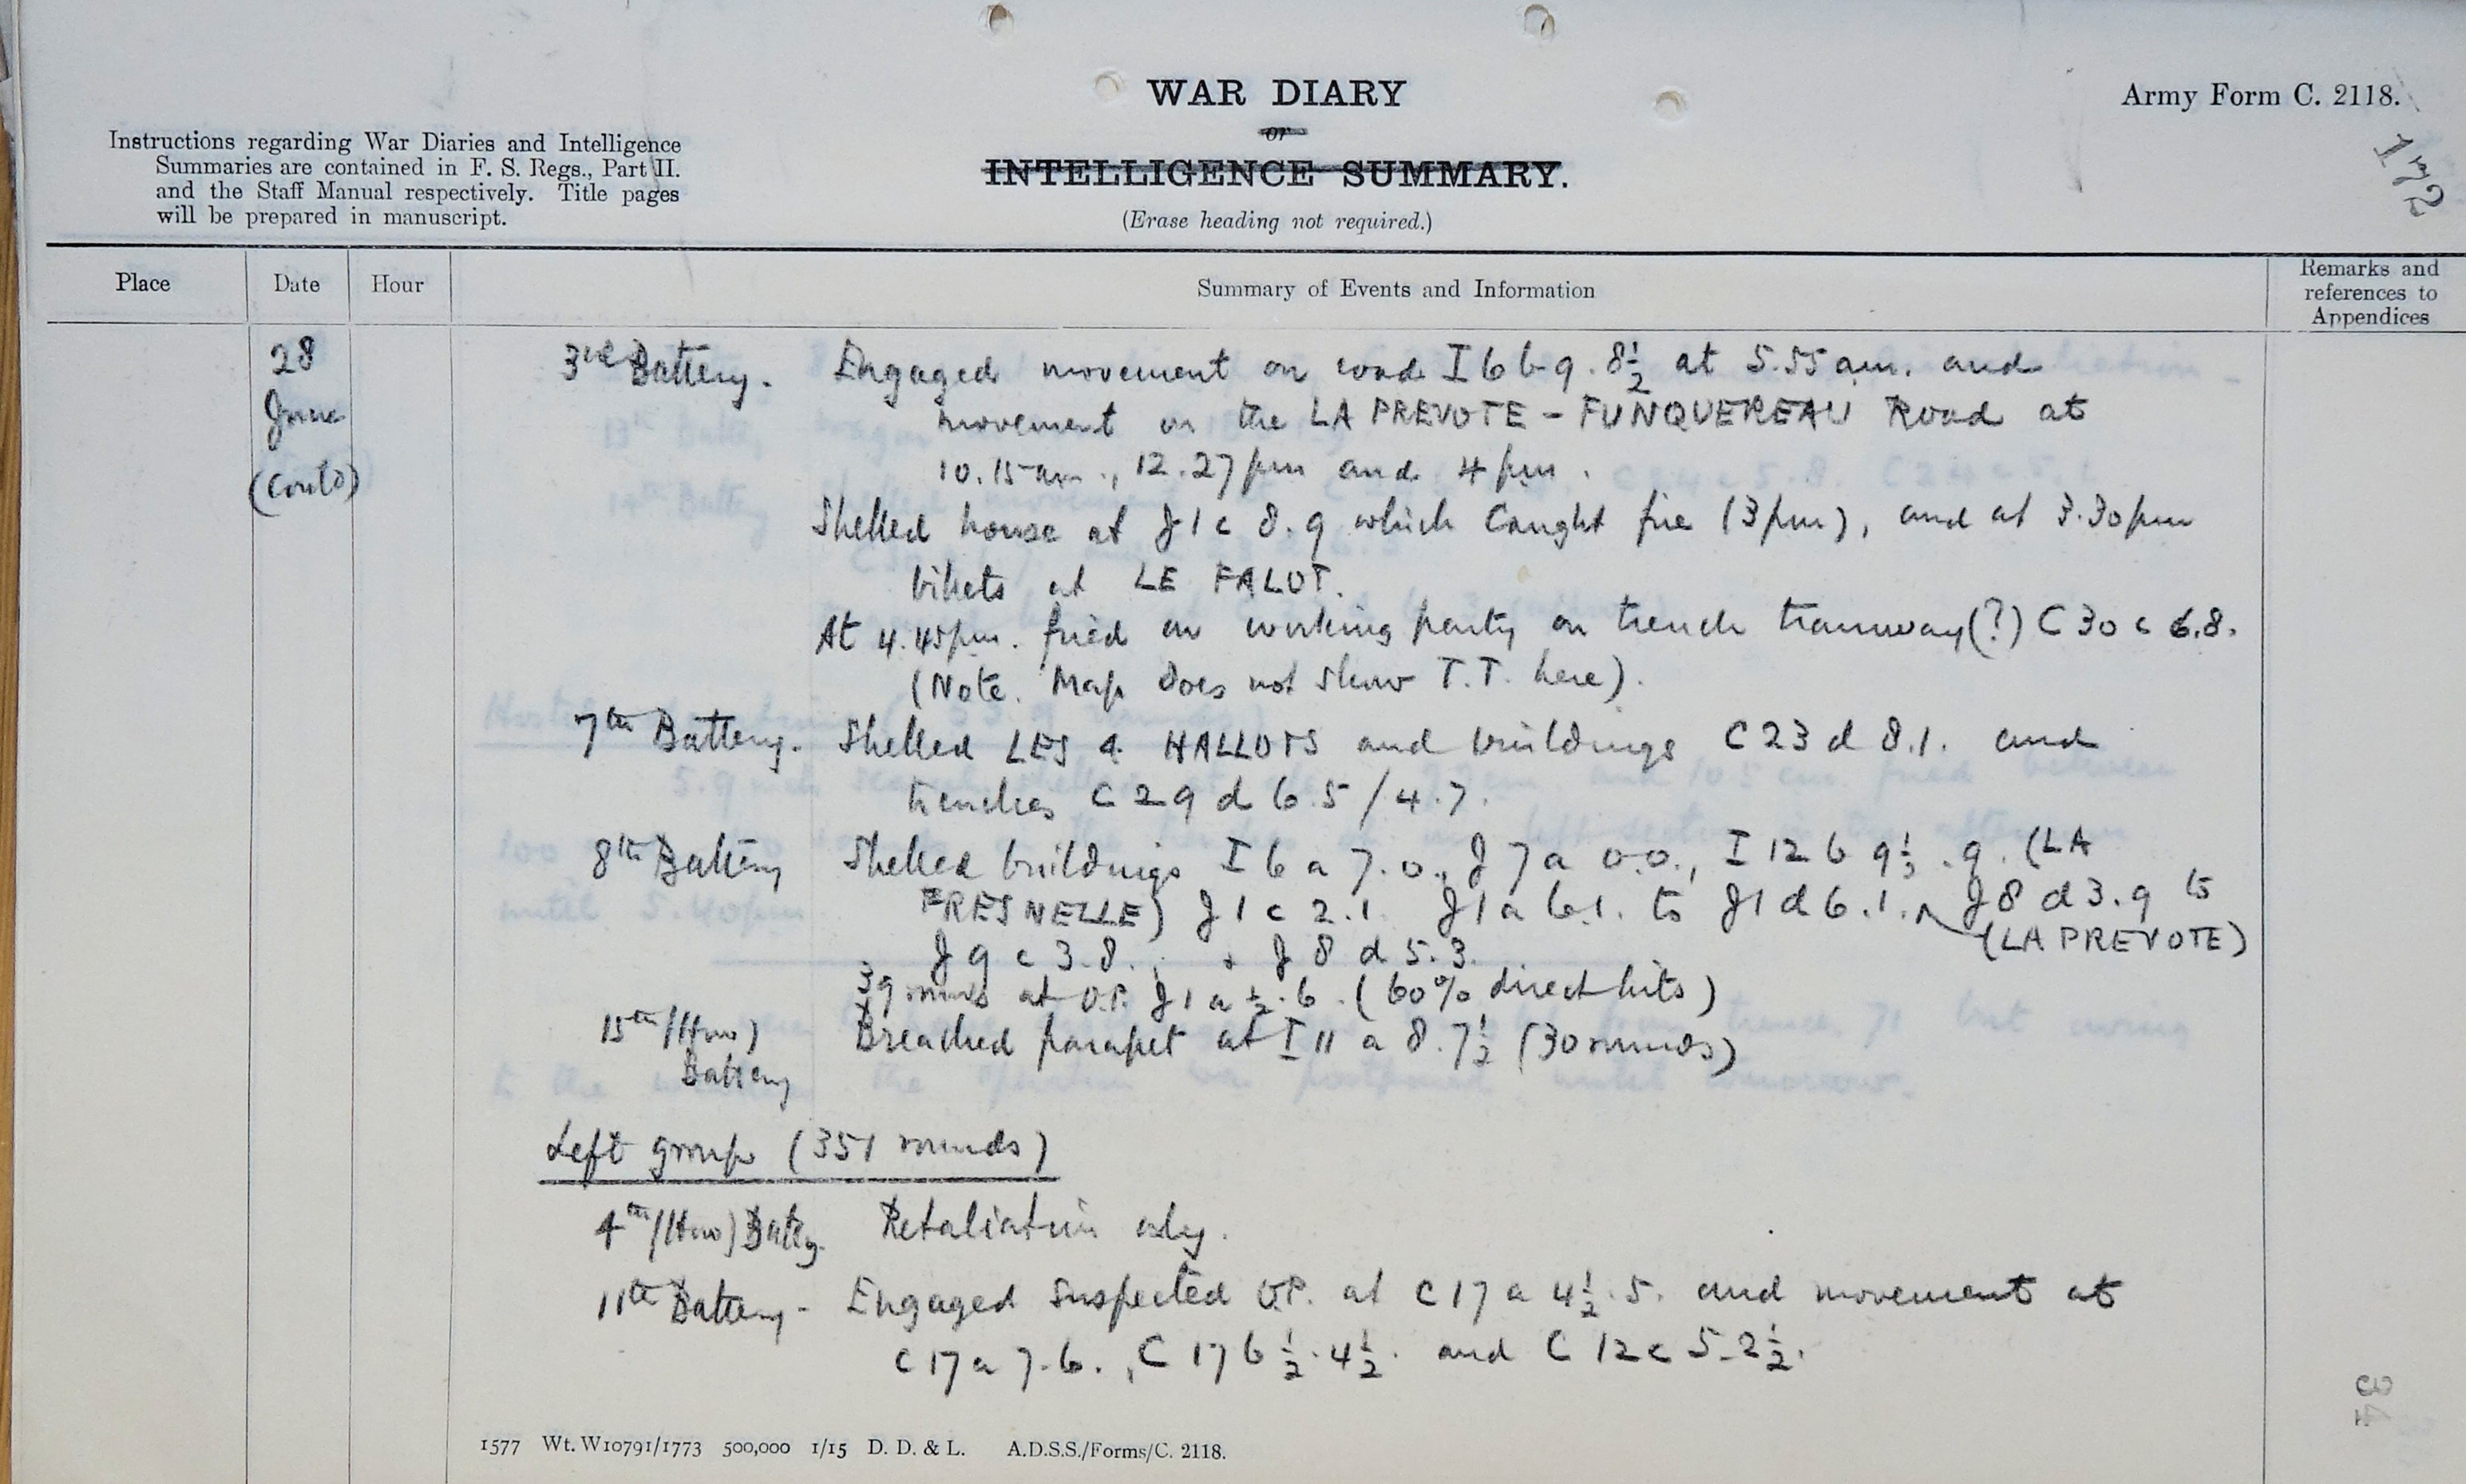 WAR DIARY
or
INTELLIGENCE SUMMARY.
(Erase heading not required.)
Army Form C. 2118.
172
Instructions regarding War Diaries and Intelligence
Summaries are contained in F. S. Regs., Part II.
and the Staff Manual respectively. Title pages
will be prepared in manuscript.
Place Date Hour Summary of Events and Information Remarks and references to Appendices
28
June
(Contd)
3rd Battery. Engaged movement on road I 6 b 9. 8½ at 5.55 am. and
movement on the LA PREVOTE - FUNQUEREAU Road at
10.15 am., 12.27 pm and 4 pm.
Shelled house at J 1 c 8.9 which caught fire (3 pm), and at 3.30 pm
billets at LE FALOT.
At 4.45 pm. fired on working party on trench tramway (?) C 30 c 6.8.
(Note. Map does not show T.T. here).
7th Battery. Shelled LES 4 HALLOTS and buildings C 23 d 8.1. and
trenches C 29 d 6.5 / 4.7.
8th Battery Shelled buildings I 6 a 7.0., J 7 a 0.0., I 12 b 9½ .9. (LA
FRESNELLE) J 1 c 2.1. J 1 a 6.1. to J 1 d 6.1. J 8 d 3.9 to
(LA PREVOTE)
J 9 c 3.8. ; + J 8 d 5.3.
39 rounds at O.P. J 1 a ½.6. (60% direct hits)
15th (How) Battery Breached parapet at I 11 a 8.7½ (30 rounds)
Left group (351 rounds)
4th (How) Batty. Retaliation only.
11th Battery - Engaged suspected O.P. at C 17 a 4½.5. and movement at
C 17 a 7.6., C 17 b ½.4½. and C 12 c 5.2½.
1577 Wt. W10791/1773 500,000 1/15 D. D. & L. A.D.S.S./Forms/C. 2118.
34